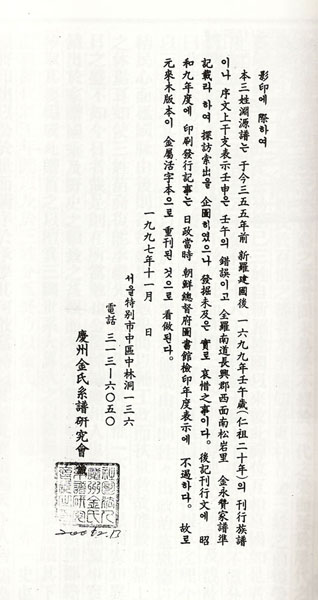 影印에 際하여
本三姓淵源譜는 于今三五五年前 新羅建國後 一六九九年壬午歲(仁祖二十年)의 刊行族譜
이나 序文上干支表示壬申은 壬午의 錯誤이고 全羅南道長興郡西面南松岩里 金永贊家譜準
記載라 하여 探訪索出을 企圖하였으나 發掘未及은 實로 哀惜之事이다. 後記刊行文에 昭
和九年度에 印刷發行記事는 日政當時 朝鮮總督府圖書館檢印年度表示에 不過하다. 故로
元來木版本이 金屬活字本으로 重刊된 것으로 看做된다.
一九九七年十一月 日
서울特別市中區中林洞一三六
電話 三一三―六○五○
慶州金氏系譜硏究會